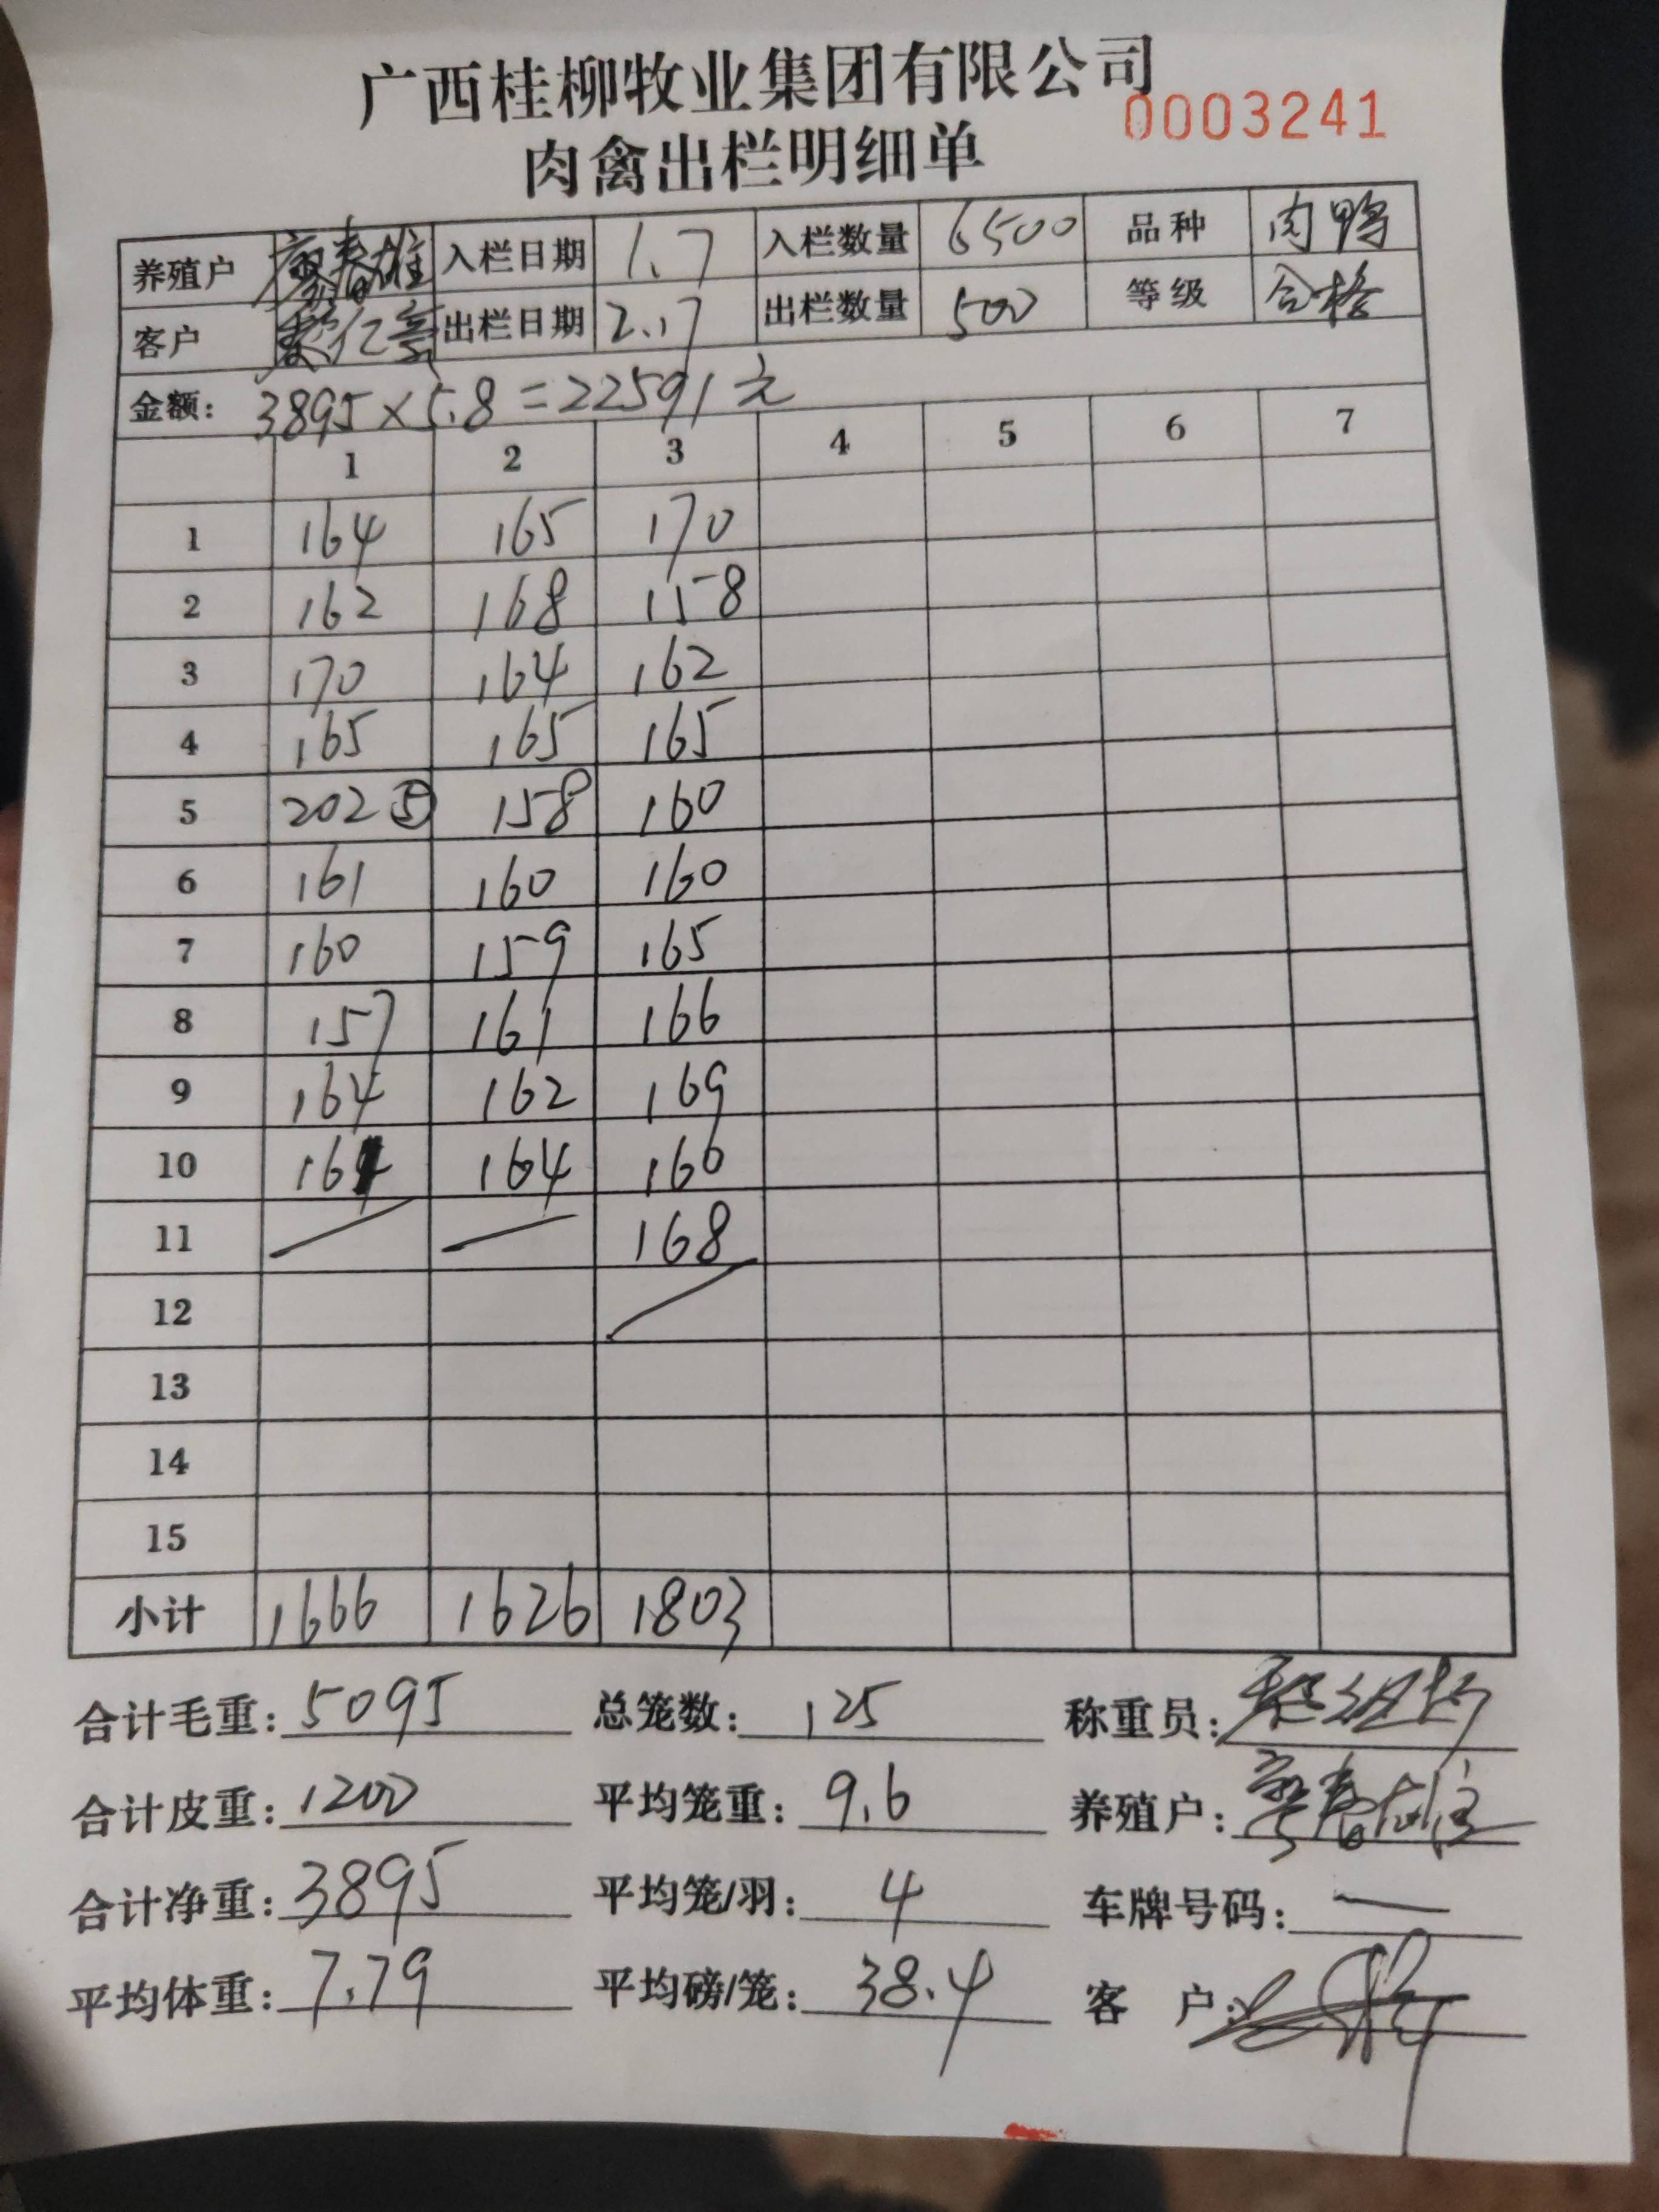 广西桂柳牧业集团有限公司
0003241
肉禽出栏明细单
养殖户 廖春雄 入栏日期 1.7 入栏数量 6500 品种 肉鸭
客户 出栏日期 2.17 出栏数量 500 等级 合格
金额: 3895×5.8=22591元
1 2 3 4 5 6 7
1 164 165 170
2 162 168 158
3 170 164 162
4 165 165 165
5 202⑤ 158 160
6 161 160 160
7 160 159 165
8 157 161 166
9 164 162 169
10 161 164 160
11 168
12
13
14
15
小计 1666 1626 1803
合计毛重: 5095 总笼数: 125 称重员:
合计皮重: 1200 平均笼重: 9.6 养殖户: 廖春雄
合计净重: 3895 平均笼/羽: 4 车牌号码: 一
平均体重: 7.79 平均磅/笼: 38.4 客 户: